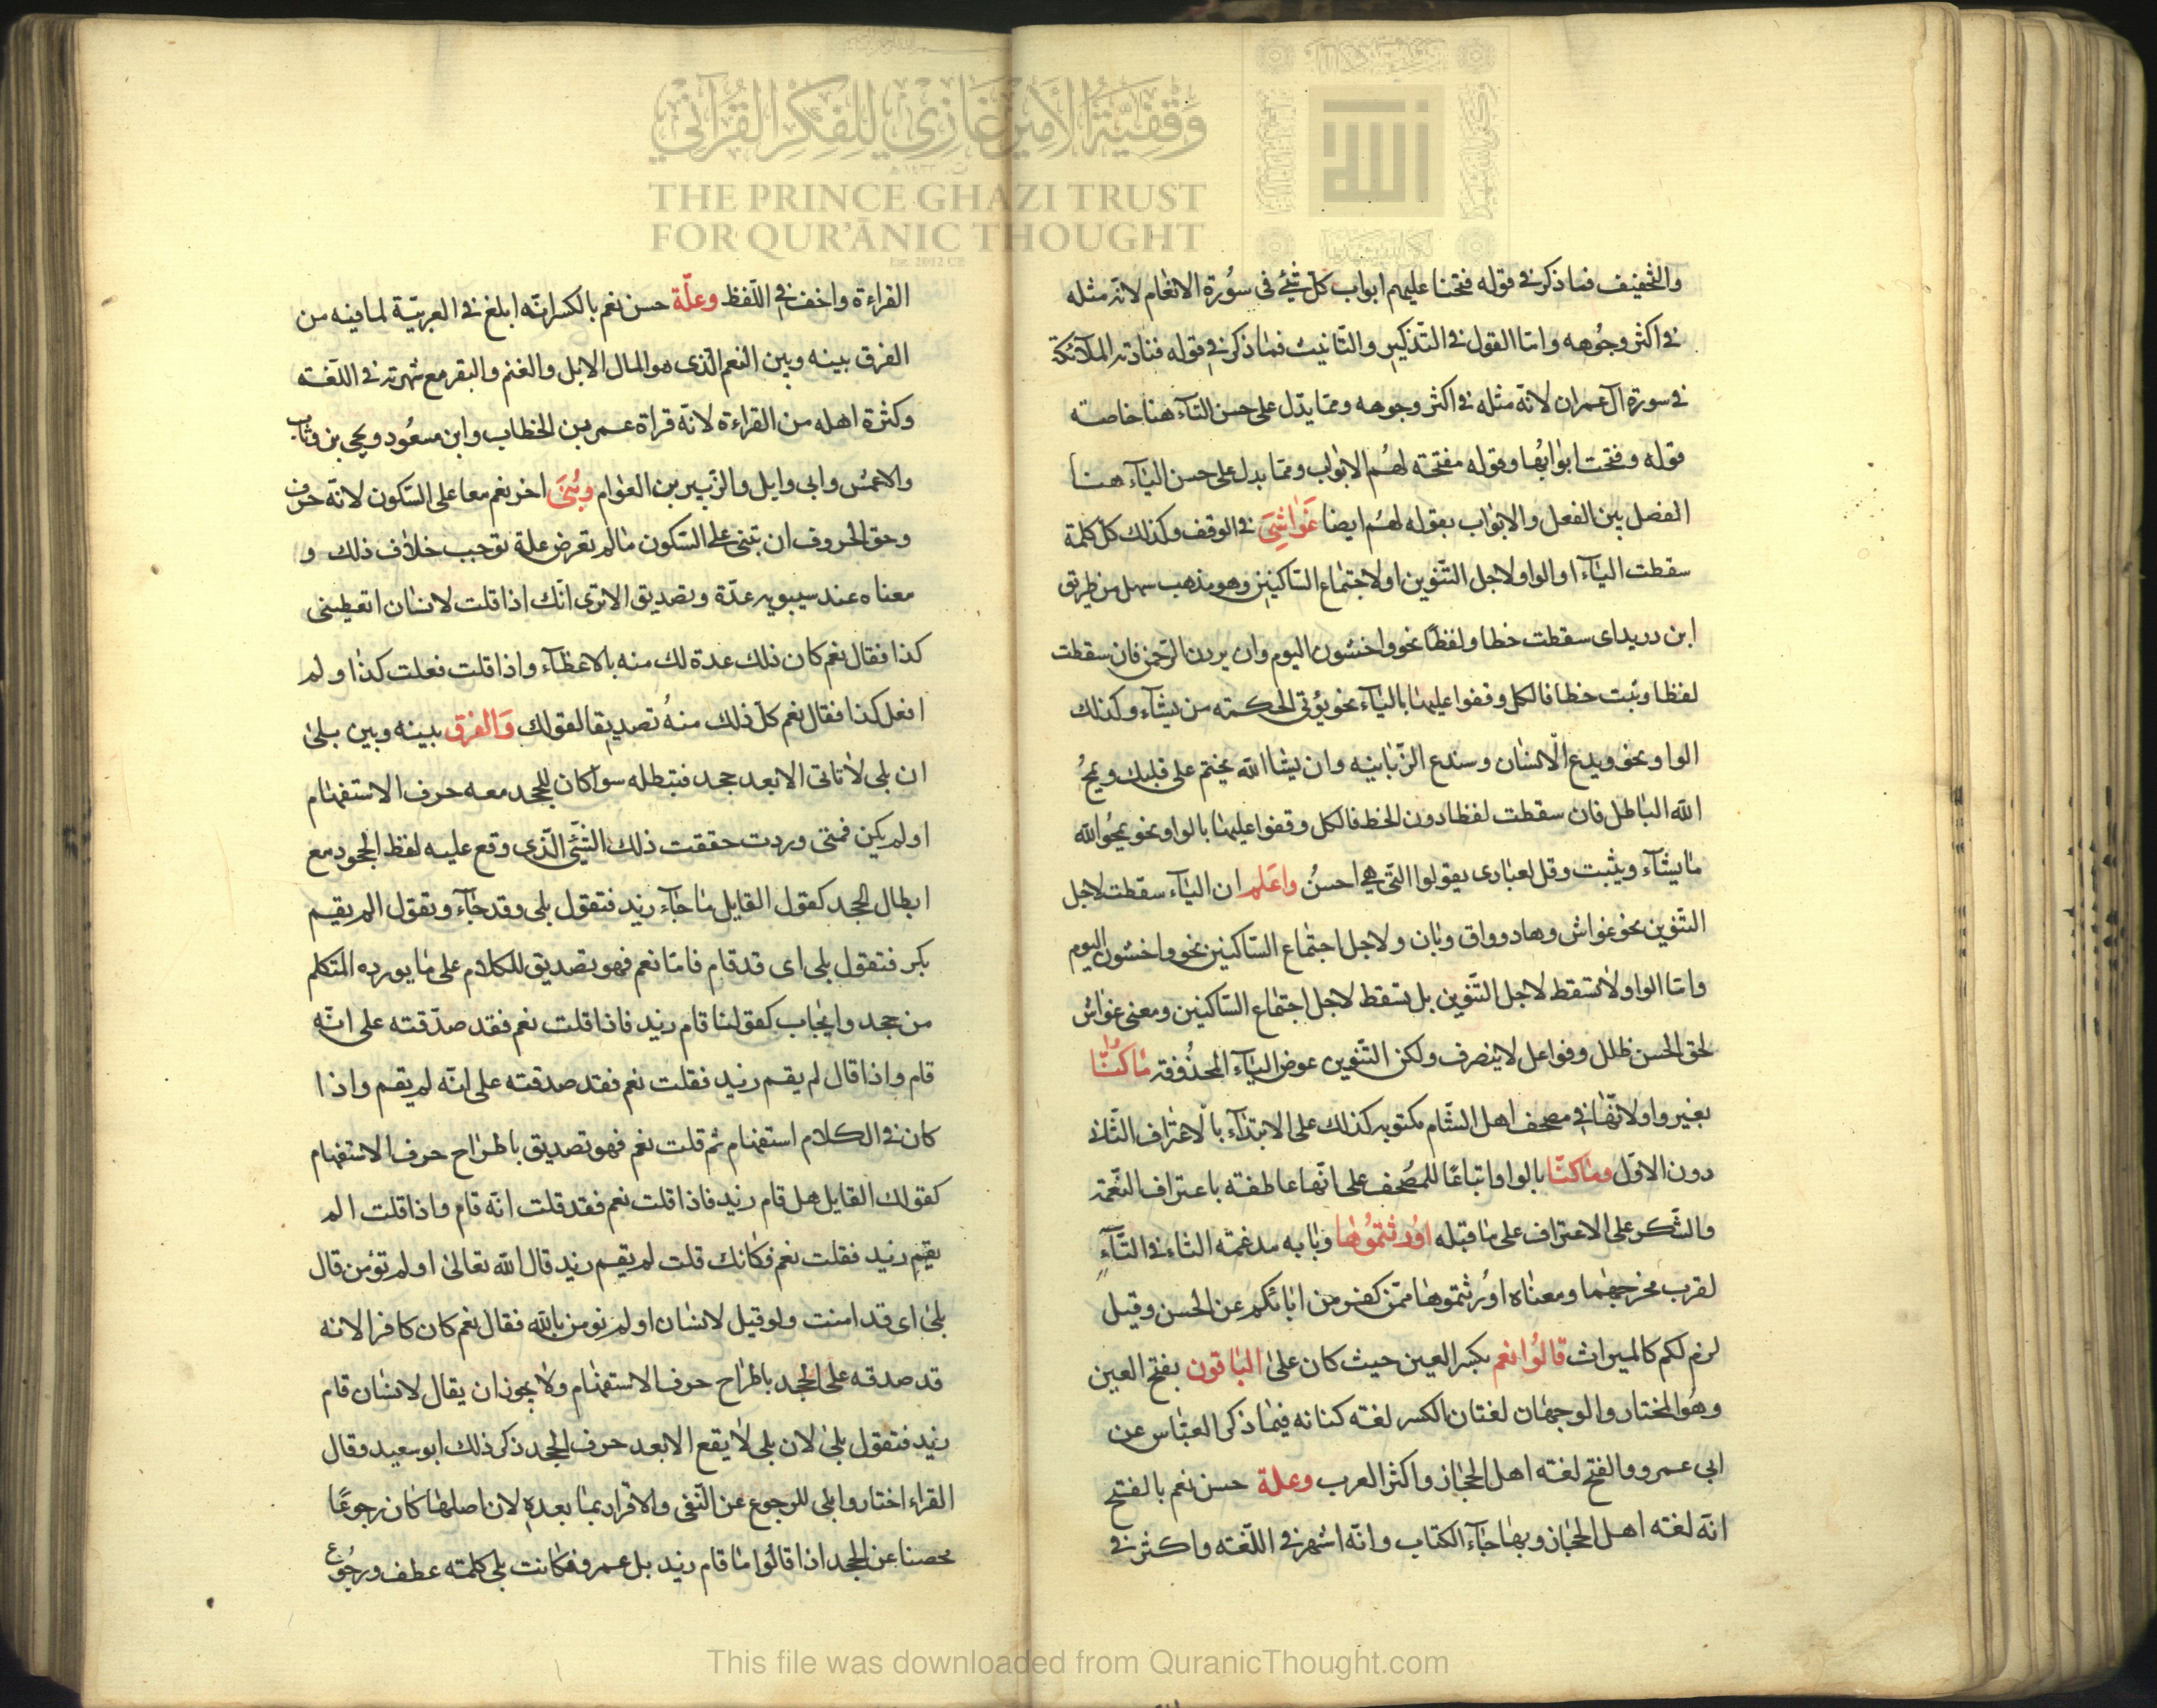 وقفية الأمير غازي للفكر القرآني
THE PRINCE GHAZI TRUST
FOR QUR'ĀNIC THOUGHT
Est. 2012 CE
والتخفيف فما ذكر في قوله فتحنا عليهم ابواب كل شيئ في سورة الانعام لانه مثله
في اكثر وجوهه واما القول في التذكير والتانيث فما ذكر في قوله فنادته الملآئكة
في سورة آل عمران لانه مثله في اكثر وجوهه ومما يدل على حسن التآء هنا خاصته
قوله وفتحت ابوابها وقوله مفتحة لهم الابواب ومما يدل على حسن اليآء هنا
الفصل بين الفعل والابواب بقوله لهم ايضا غواشي في الوقف وكذلك كل كلمة
سقطت اليآء او الواو لاجل التنوين او لاجتماع الساكنين وهو مذهب سهل من طريق
ابن دريد اى سقطت خطا ولفظا نحو واخشون اليوم وان يردن الرحمن فان سقطت
لفظا وثبت خطا فالكل وقفوا عليها باليآء نحو يؤتي الحكمته من يشآء وكذلك
الواو نحو ويدع الانسان وسندع الزبانيه وان يشا الله يختم على قلبك ويمح
الله الباطل فان سقطت لفظا دون الخط فالكل وقفوا عليها بالواو نحو يمحو الله
ما يشآء ويثبت وقل لعبادى يقولوا التي هي احسن واعلم ان اليآء سقطت لاجل
التنوين نحو غواش وهاد وواق وبان ولاجل اجتماع الساكنين نحو واخشون اليوم
واما الواو لا تسقط لاجل التنوين بل تسقط لاجل اجتماع الساكنين ومعنى غواش
لحق الحسن ظلل وفواعل لا ينصرف ولكن التنوين عوض اليآء المحذوفة ما كنا
بغير واو لانها في مصحف اهل الشام مكتوبه كذلك على الابتدآء بالاعتراف الثاني
دون الاول وما كنا بالواو اتباعا للمصحف على انها عاطفته باعتراف النعمة
والشكر على الاعتراف على ما قبله اورثتموها وبابه مدغمة الثاء في التآء
لقرب مخرجهما ومعناه اورثتموها ممن كفر من ابائكم عن الحسن وقيل
لزم لكم كالميراث قالوا نعم بكسر العين حيث كان على الباقون بفتح العين
وهو المختار والوجهان لغتان الكسر لغته كنانه فيما ذكر العباس عن
ابي عمرو والفتح لغته اهل الحجاز واكثر العرب وعلة حسن نعم بالفتح
انه لغته اهل الحجاز وبها جآء الكتاب وانه اشهر في اللغته واكثر في
القراءة واخف في اللفظ وعلة حسن نعم بالكسر انه ابلغ في العربية لما فيه من
الفرق بينه وبين النعم الذى هو المال الابل والغنم والبقر مع شهرته في اللغته
وكثرة اهله من القراءة لانه قراة عمر بن الخطاب وابن مسعود ويحيى بن وثاب
والاعمش وابي وايل والزبير بن العوام وبني اخر نعم معا على السكون لانه حرف
وحق الحروف ان تبنى على السكون ما لم تعرض علة توجب خلاف ذلك و
معناه عند سيبويه عدة وتصديق الا ترى انك اذا قلت لانسان اتعطيني
كذا فقال نعم كان ذلك عدة لك منه بالاعطآء واذا قلت فعلت كذا ولم
افعل كذا فقال نعم كل ذلك منه تصديقا لقولك والفرق بينه وبين بلى
ان بلى لا تاتي الا بعد جحد فتبطله سوآ كان للجحد معه حرف الاستفهام
او لم يكن فمتى وردت حققت ذلك الشيئ الذى وقع عليه لفظ الجحود مع
ابطال الجحد كقول القايل ما جآء زيد فتقول بلى وقد جآء وتقول الم يقم
بكر فتقول بلى اى قد قام فاما نعم فهو تصديق للكلام على ما يورده المتكلم
من جحد وايجاب كقولنا قام زيد فاذا قلت نعم فقد صدقته على انه
قام واذا قال لم يقم زيد فقلت نعم فقد صدقته على انه لم يقم واذا
كان في الكلام استفهام ثم قلت نعم فهو تصديق باطراح حرف الاستفهام
كقولك القايل هل قام زيد فاذا قلت نعم فقد قلت انه قام واذا قلت الم
يقم زيد فقلت نعم فكانك قلت لم يقم زيد قال الله تعالى اولم تؤمن قال
بلى اى قد امنت ولو قيل لانسان اولم تومن بالله فقال نعم كان كافرا لانه
قد صدقه على الجحد باطراح حرف الاستفهام ولا يجوز ان يقال لانسان قام
زيد فتقول بلى لان بلى لا يقع الا بعد حرف الجحد ذكر ذلك ابو سعيد وقال
القراء اختاروا بلى للرجوع عن النفى والاقرار بما بعده لان اصلها كان رجوعا
محصنا عن الجحد اذا قالوا ما قام زيد بل عمرو فكانت بلى كلمته عطف ورجوع
This file was downloaded from QuranicThought.com